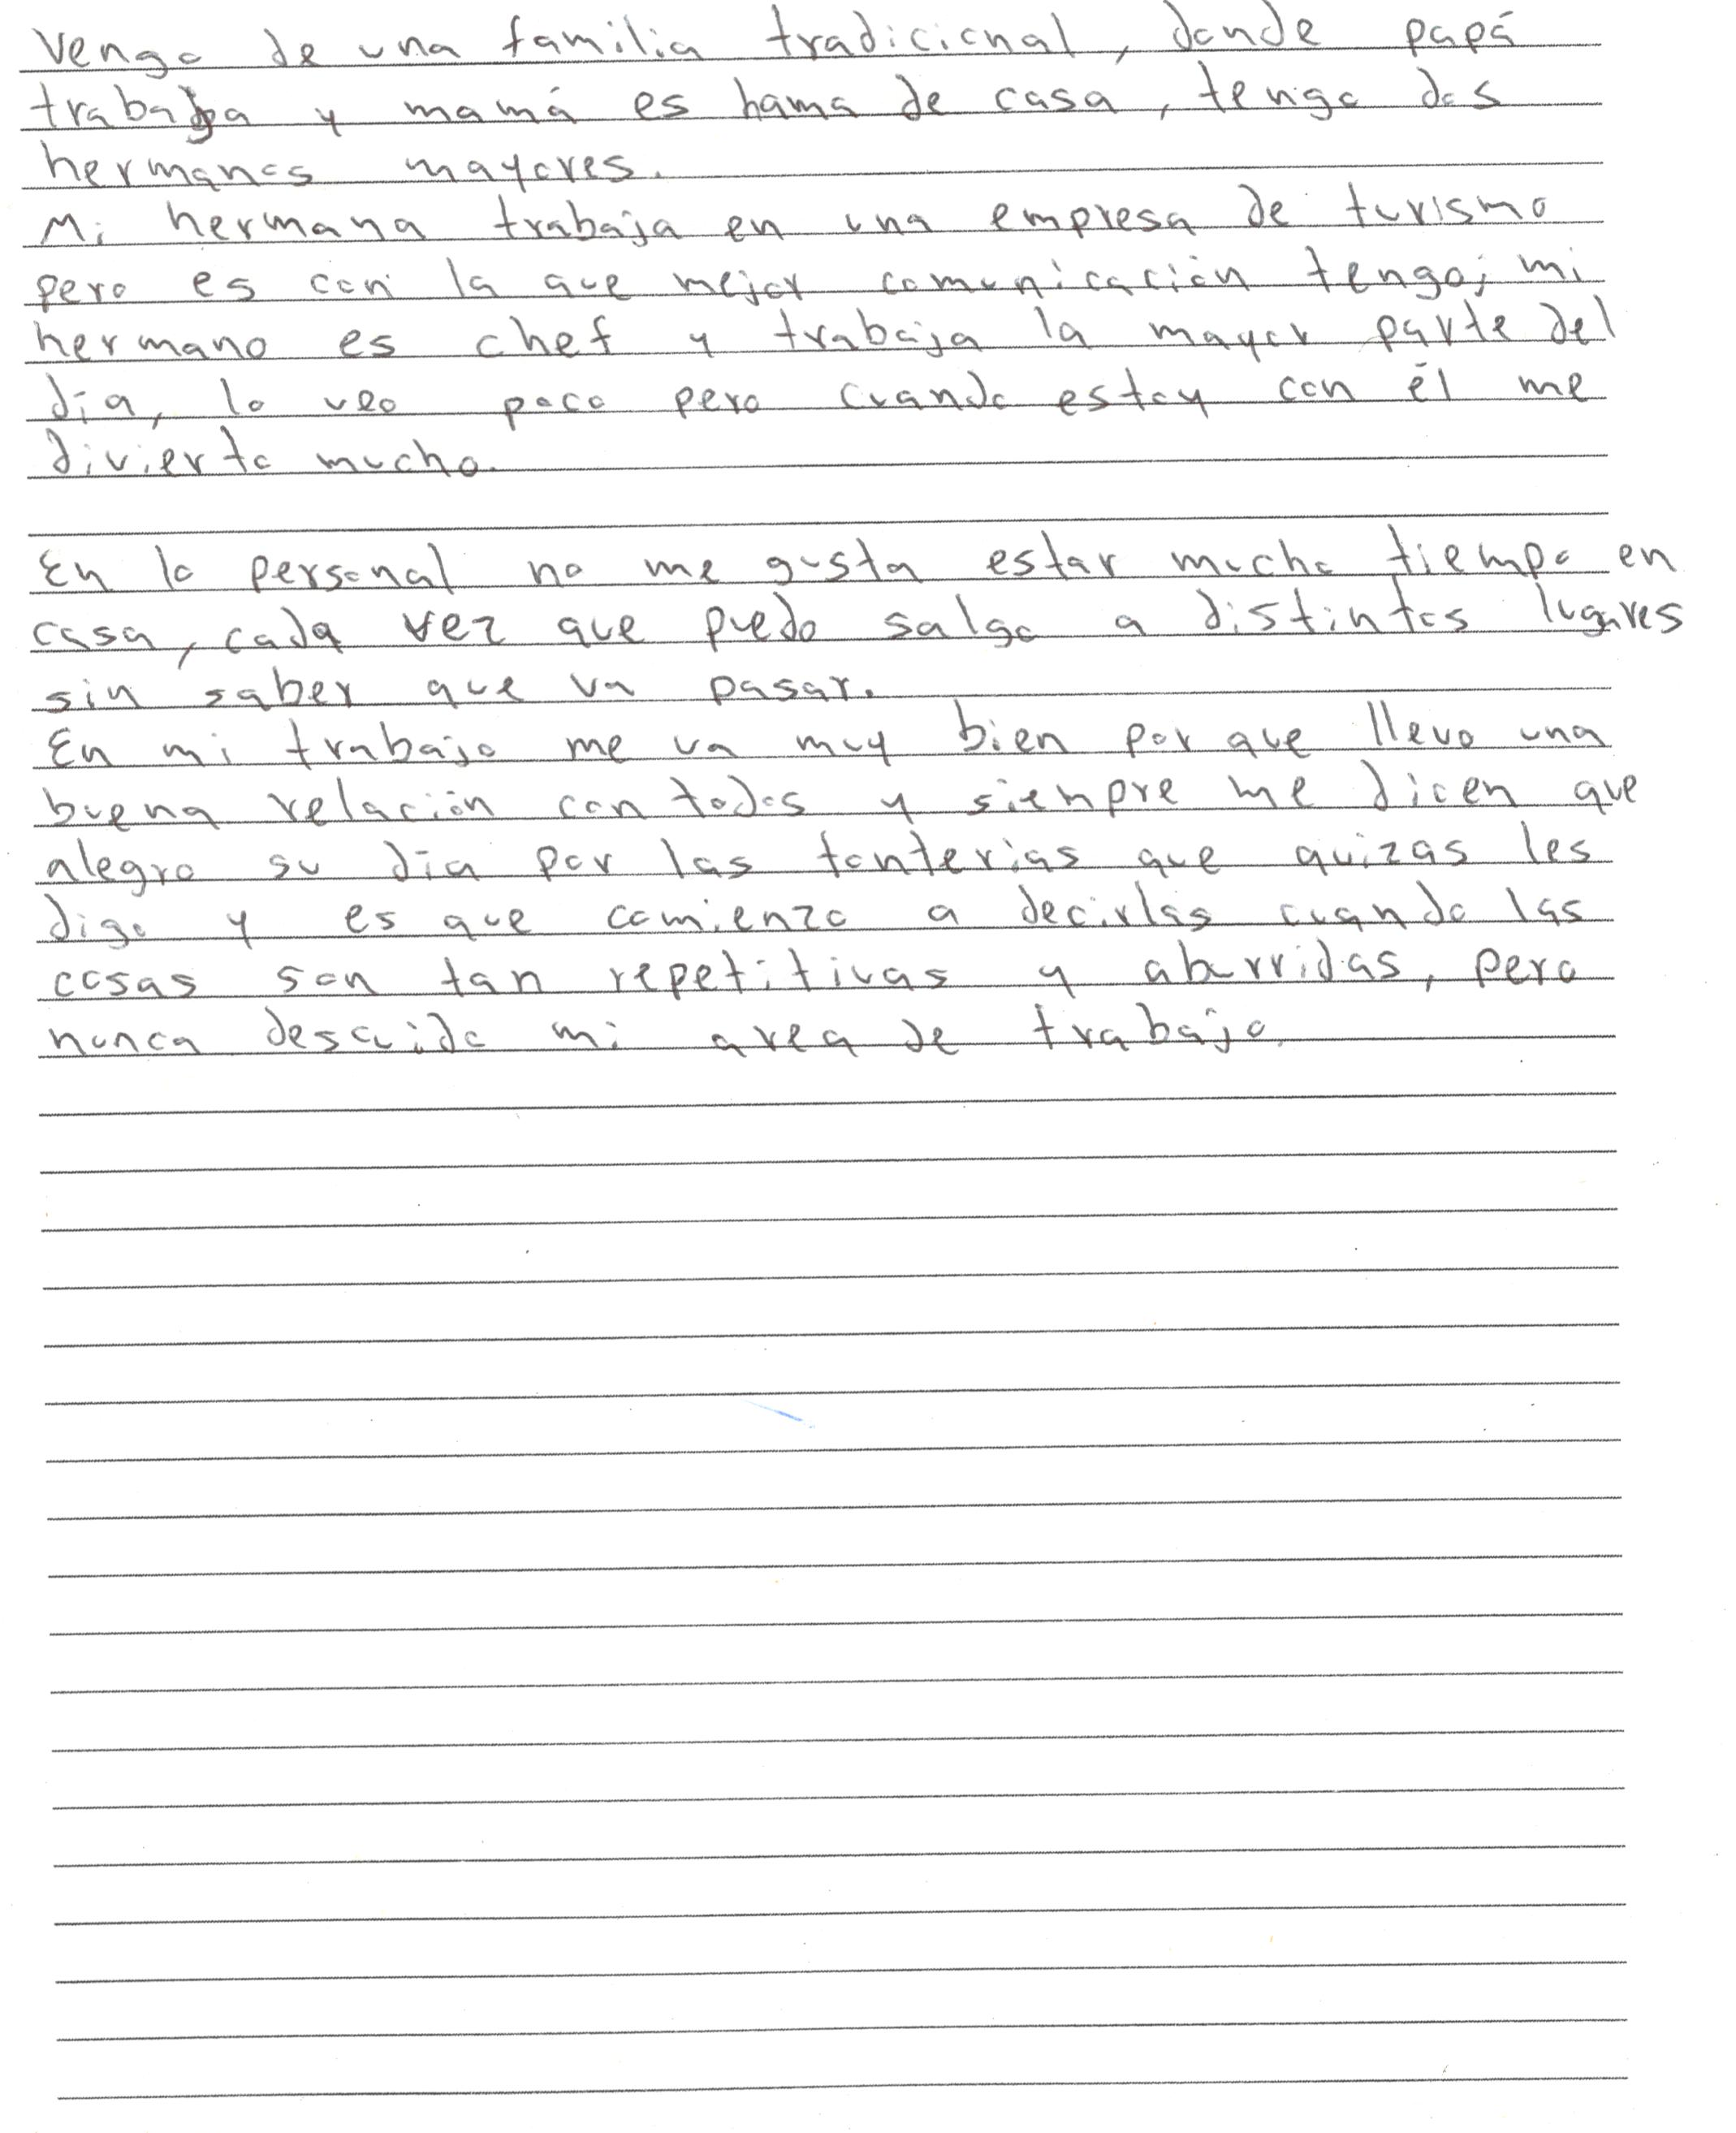 Vengo de una familia tradicional, donde papá
trabaja y mamá es hama de casa, tengo dos
hermanos mayores.
Mi hermana trabaja en una empresa de turismo
pero es con la que mejor comunicación tengo; mi
hermano es chef y trabaja la mayor parte del
día, lo veo poco pero cuando estoy con él me
divierto mucho.
En lo personal no me gusta estar mucho tiempo en
casa, cada vez que puedo salgo a distintos lugares
sin saber que va pasar.
En mi trabajo me va muy bien por que llevo una
buena relación con todos y siempre me dicen que
alegro su día por las tonterias que quizas les
digo y es que comienzo a decirlas cuando las
cosas son tan repetitivas y aburridas, pero
nunca descuido mi area de trabajo.